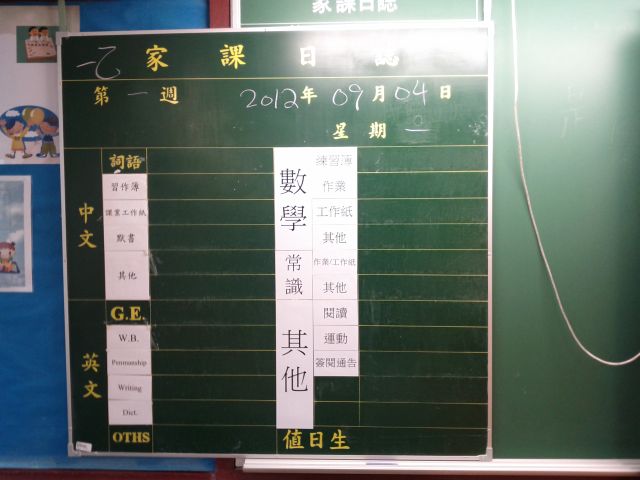 家課日誌
一乙 家課日誌
第一週 2012年09月04日
星期二
中文
詞語
習作簿
課業工作紙
默書
其他
英文
G.E.
W.B.
Penmanship
Writing
Dict.
OTHS
數學
練習簿
作業
工作紙
其他
常識
作業/工作紙
其他
其他
閱讀
運動
簽閱通告
值日生